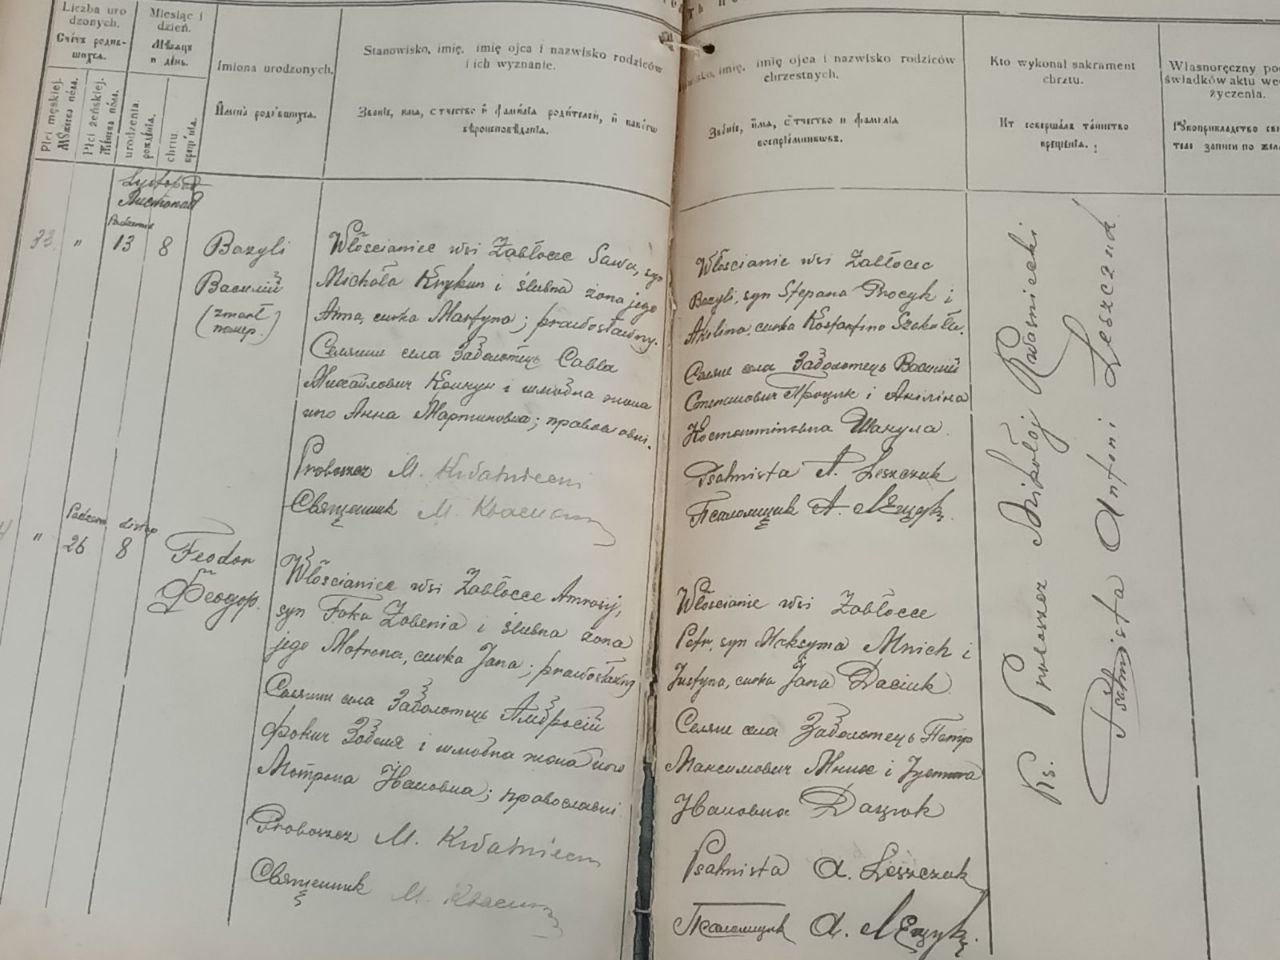 Liczba uro
dzonych.
Счетъ родив-
шихся.
Płci męskiej.
Мужеска пола.
Płci żeńskiej.
Женска пола.
Miesiąc i
dzień.
Мѣсяцъ
и день.
urodzenia.
рожденія.
chrztu.
крещенія.
Imiona urodzonych.
Имена родившихся.
Stanowisko, imię, imię ojca i nazwisko rodziców
i ich wyznanie.
Званіе, имя, отчество и фамилія родителей, и какого
вѣроисповѣданія.
imię, imię ojca i nazwisko rodziców
chrzestnych.
Званіе, имя, отчество и фамилія
воспріемниковъ.
Kto wykonał sakrament
chrztu.
Кто совершалъ таинство
крещенія.
Własnoręczny
świadków aktu
życzenia.
Рукоприкладство
записи по
Listopad
Листопад
33. " Padziernik 13 8
Bazyli
Василий
(zmarł
помер.)
Włościanice wsi Zabłocce Sawa, syn
Michała Krykun i ślubna żona jego
Anna, curka Martyna; prawosławny.
Селяни села Заболотець Савва
Михайлович Крикун і шлюбна жона
його Анна Мартиновна; православні.
Proboszcz M. Kwaśniecki
Священник М.
Włościanie wsi Zabłocce
Bazyli, syn Stepana Procyk i
Akilina, curka Kostantina Szakuła.
Селяни села Заболотець Василий
Степанович Процик і Акіліна
Костантиновна Шакула.
Psalmista A. Leszczuk
Псаломщик А. Лещук.
" Padziern 26 Listop 8
Feodor
Феодор.
Włościanice wsi Zabłocce Amrosij,
syn Foka Zobenia i ślubna żona
jego Motrona, curka Jana; prawosławny
Селяни села Заболотець Амвросій
Фокич Зобеня і шлюбна жона його
Мотрона Ивановна; православні
Proboszcz M. Kwaśniecki
Священник М.
Włościanie wsi Zabłocce
Petr, syn Maksyma Mnich i
Justyna, curka Jana Daciuk
Селяни села Заболотець Петр
Максимович Мних і Іустина
Ивановна Дацюк
Psalmista A. Leszczuk
Псаломщик А. Лещук.
Ks. Proboszcz Mikołaj Kwaśniecki
Psalmista Antoni Leszczuk